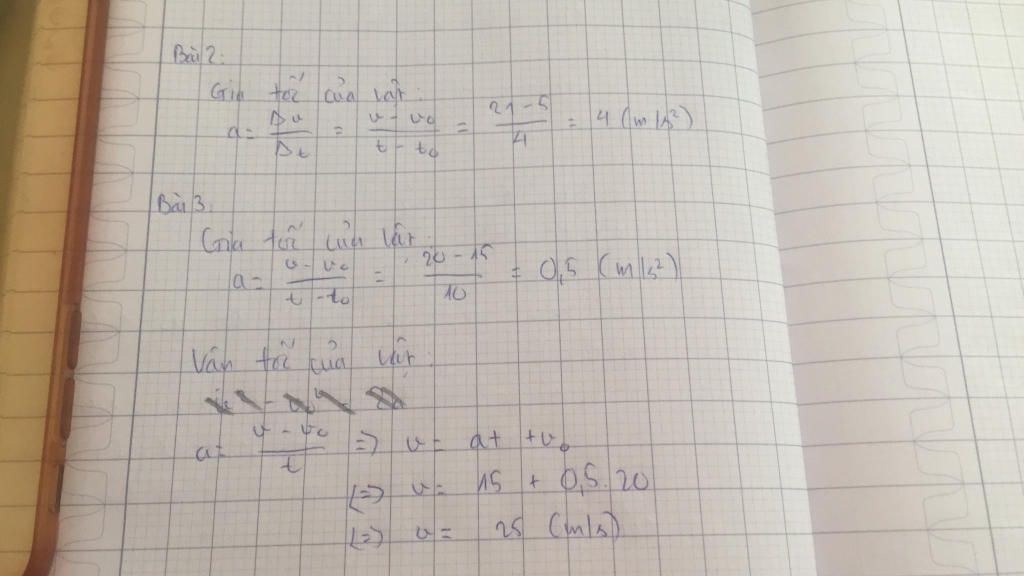 Bài 2:
Gia tốc của vật:
a = Δv/Δt = v - v₀/t - t₀ = 21 - 5/4 = 4 (m/s²)
Bài 3:
Gia tốc của vật:
a = v - v₀/t - t₀ = 20 - 15/10 = 0,5 (m/s²)
Vận tốc của vật:
a = v - v₀/t => v = at + v₀
(=> v = 15 + 0,5.20
(=> v = 25 (m/s)